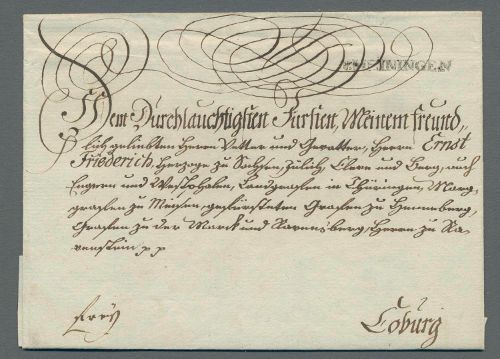 MEININGEN
Dem Durchlauchtigsten Fürsten, Meinem freund„
lich geliebten Herrn Vetter und Gevatter, Herrn Ernst
Friederich, Herzoge zu Sachsen, Jülich, Cleve und Berg, auch
Engern und Westphalen, Landgrafen in Thüringen, Marg„
grafen zu Meißen, gefürsteten Grafen zu Henneberg,
Grafen zu der Marck und Ravensberg, Herrn zu Ra„
venstein p p
frey
Coburg